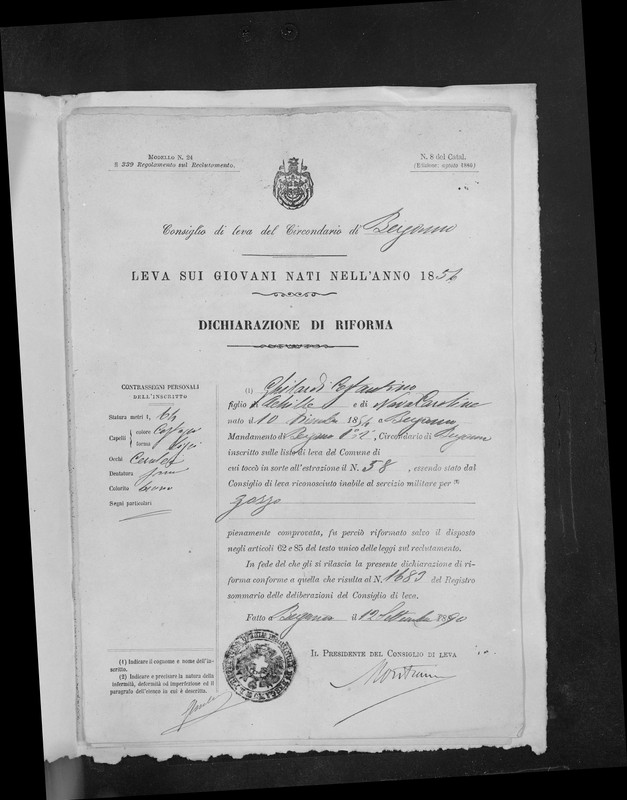 MODELLO N. 24
§ 339 Regolamento sul Reclutamento.
N. 8 del Catal.
(Edizione: agosto 1889)
Consiglio di leva del Circondario di Bergamo
LEVA SUI GIOVANI NATI NELL'ANNO 185
DICHIARAZIONE DI RIFORMA
CONTRASSEGNI PERSONALI
DELL'INSCRITTO
Statura metri 1, 64
Capelli { colore
forma lisci
Occhi
Dentatura
Colorito
Segni particolari
(1) Ghilardi Costantino
figlio di Achille e di Nava Carolina
nato il 10 185 a Bergamo
Mandamento di Bergamo , Circondario di Bergamo
inscritto sulle liste di leva del Comune di
cui toccò in sorte all'estrazione il N. 58, essendo stato dal
Consiglio di leva riconosciuto inabile al servizio militare per (2)
gozzo
pienamente comprovata, fu perciò riformato salvo il disposto
negli articoli 62 e 85 del testo unico delle leggi sul reclutamento.
In fede del che gli si rilascia la presente dichiarazione di ri-
forma conforme a quella che risulta al N. 1683 del Registro
sommario delle deliberazioni del Consiglio di leva.
Fatto a Bergamo il 12 Settembre 1890
IL PRESIDENTE DEL CONSIGLIO DI LEVA
(1) Indicare il cognome e nome dell'in-
scritto.
(2) Indicare e precisare la natura della
infermità, deformità od imperfezione ed il
paragrafo dell'elenco in cui è descritta.